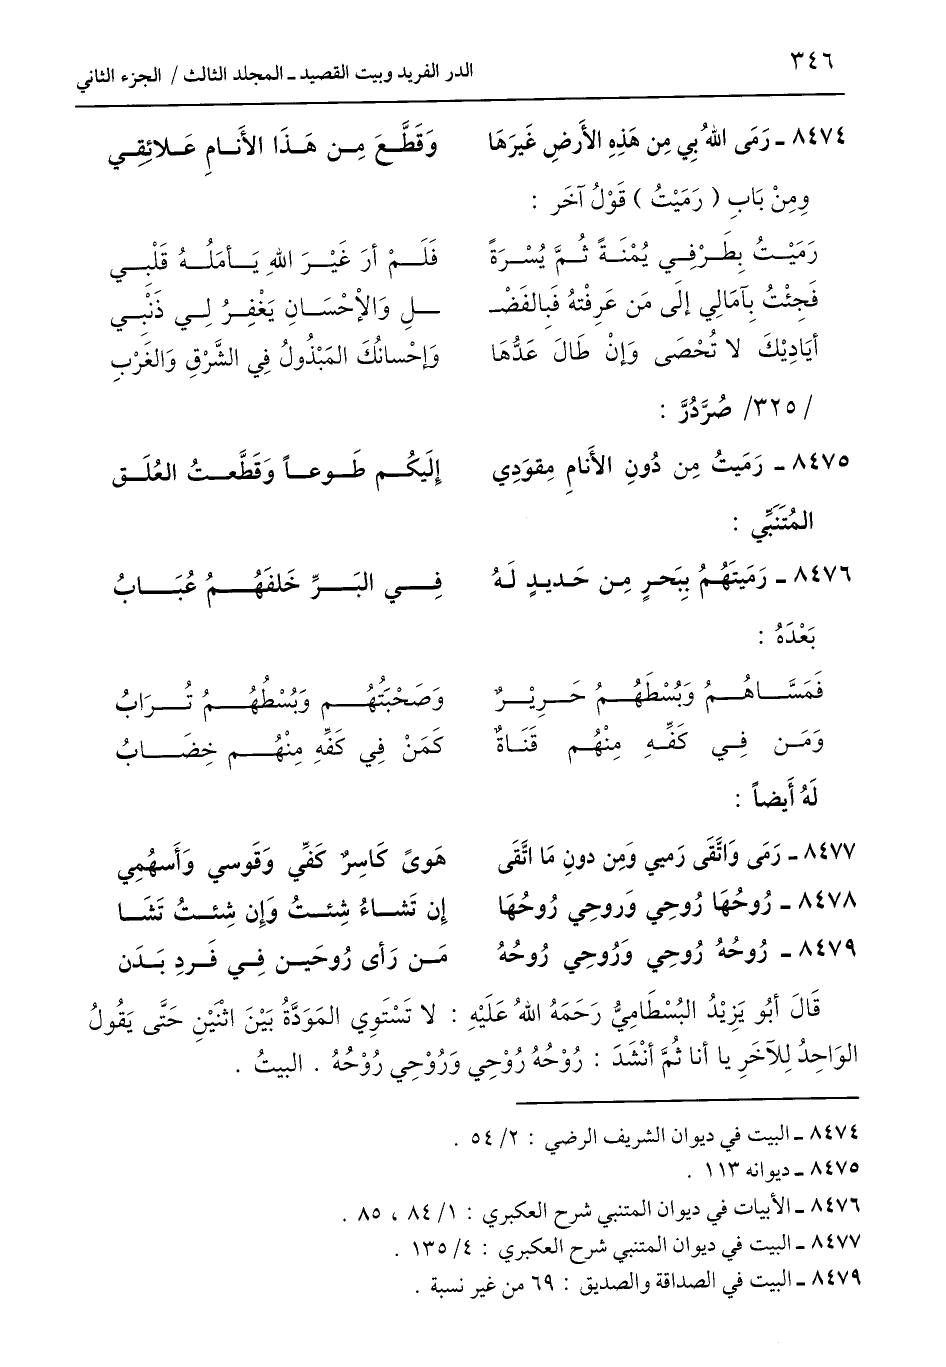 ٣٤٦
الدر الفريد وبيت القصيد ـ المجلد الثالث / الجزء الثاني
٨٤٧٤ ـ رَمَى اللهُ بِي مِن هَذِهِ الأَرضِ غَيرَهَا وَقَطَّعَ مِـن هَـذَا الأَنَـامِ عَـلائِقِـي
وِمِنْ بَابِ ( رَمَيْتُ ) قَوْلُ آخَر :
رَمَيْـتُ بِطَـرْفِـي يُمْنَـةً ثُـمَّ يُسْـرَةً فَلَـمْ أرَ غَيْـرَ اللهِ يَـأملُـهُ قَلْبِـي
فَجِئْتُ بِآمَالِي إلَى مَن عَرِفْتهُ فَبالفَضْـ ـلِ وَالإحْسَـانِ يَغْفِـرُ لِـي ذَنْبِي
أيَادِيْكَ لا تُحْصَى وَإنْ طَالَ عَدُّهَا وَإحْسانُكَ المَبْذُولُ فِي الشَّرْقِ وَالغَرْبِ
/ ٣٢٥/ صُرَّدُرَّ :
٨٤٧٥ ـ رَمَيتُ مِن دُونِ الأَنامِ مِقوَدِي إِلَيكُـم طَـوعـاً وَقَطَّعـتُ العُلَـق
المُتَنَبِّي :
٨٤٧٦ ـ رَمَيتَهُـمُ بِبَحرٍ مِـن حَـديـدٍ لَـهُ فِـي البَـرِّ خَلفَهُـمُ عُبَـابُ
بَعْدَهُ :
فَمَسَّـاهُـمُ وَبُسْطَهُـمُ حَـرِيْـرٌ وَصَحْبَتُهُـم وَبُسْطُهُـمُ تُـرَابُ
وَمَـن فِـي كَفِّـهِ مِنْهُـم قَنَـاةٌ كَمَنْ فِي كَفِّهِ مِنْهُـم خِضَـابُ
لَهُ أَيضاً :
٨٤٧٧ ـ رَمَى وَاتَّقَى رَمِيي وَمِن دونِ مَا اتَّقَى هَوىً كَاسِرٌ كَفِّي وَقَوسي وَأَسهُمِي
٨٤٧٨ ـ رُوحُهَا رُوحِي وَروحِي رُوحُهَا إن تَشـاءُ شِئـتُ وَإن شِئـتُ تَشَـا
٨٤٧٩ ـ رُوحُهُ رُوحِي وَرُوحِي رُوحُهُ مَـن رَأى رُوحَيـن فِـي فَـردِ بَـدَن
قَالَ أبُو يَزِيْدُ البُسْطَامِيُّ رَحَمَهُ اللهُ عَلَيْهِ : لا تَسْتَوِي المَوَدَّةُ بَيْنَ اثْنَيْنِ حَتَّى يَقُولُ
الوَاحِدُ لِلآخَرِ يا أنا ثُمَّ أنْشَدَ : رُوْحُهُ رُوْحِي وَرُوْحِي رُوْحُهُ . البيتُ .
٨٤٧٤ ـ البيت في ديوان الشريف الرضي : ٢/ ٥٤ .
٨٤٧٥ ـ ديوانه ١١٣ .
٨٤٧٦ ـ الأبيات في ديوان المتنبي شرح العكبري : ١/ ٨٤ ، ٨٥ .
٨٤٧٧ ـ البيت في ديوان المتنبي شرح العكبري : ٤/ ١٣٥ .
٨٤٧٩ ـ البيت في الصداقة والصديق : ٦٩ من غير نسبة .